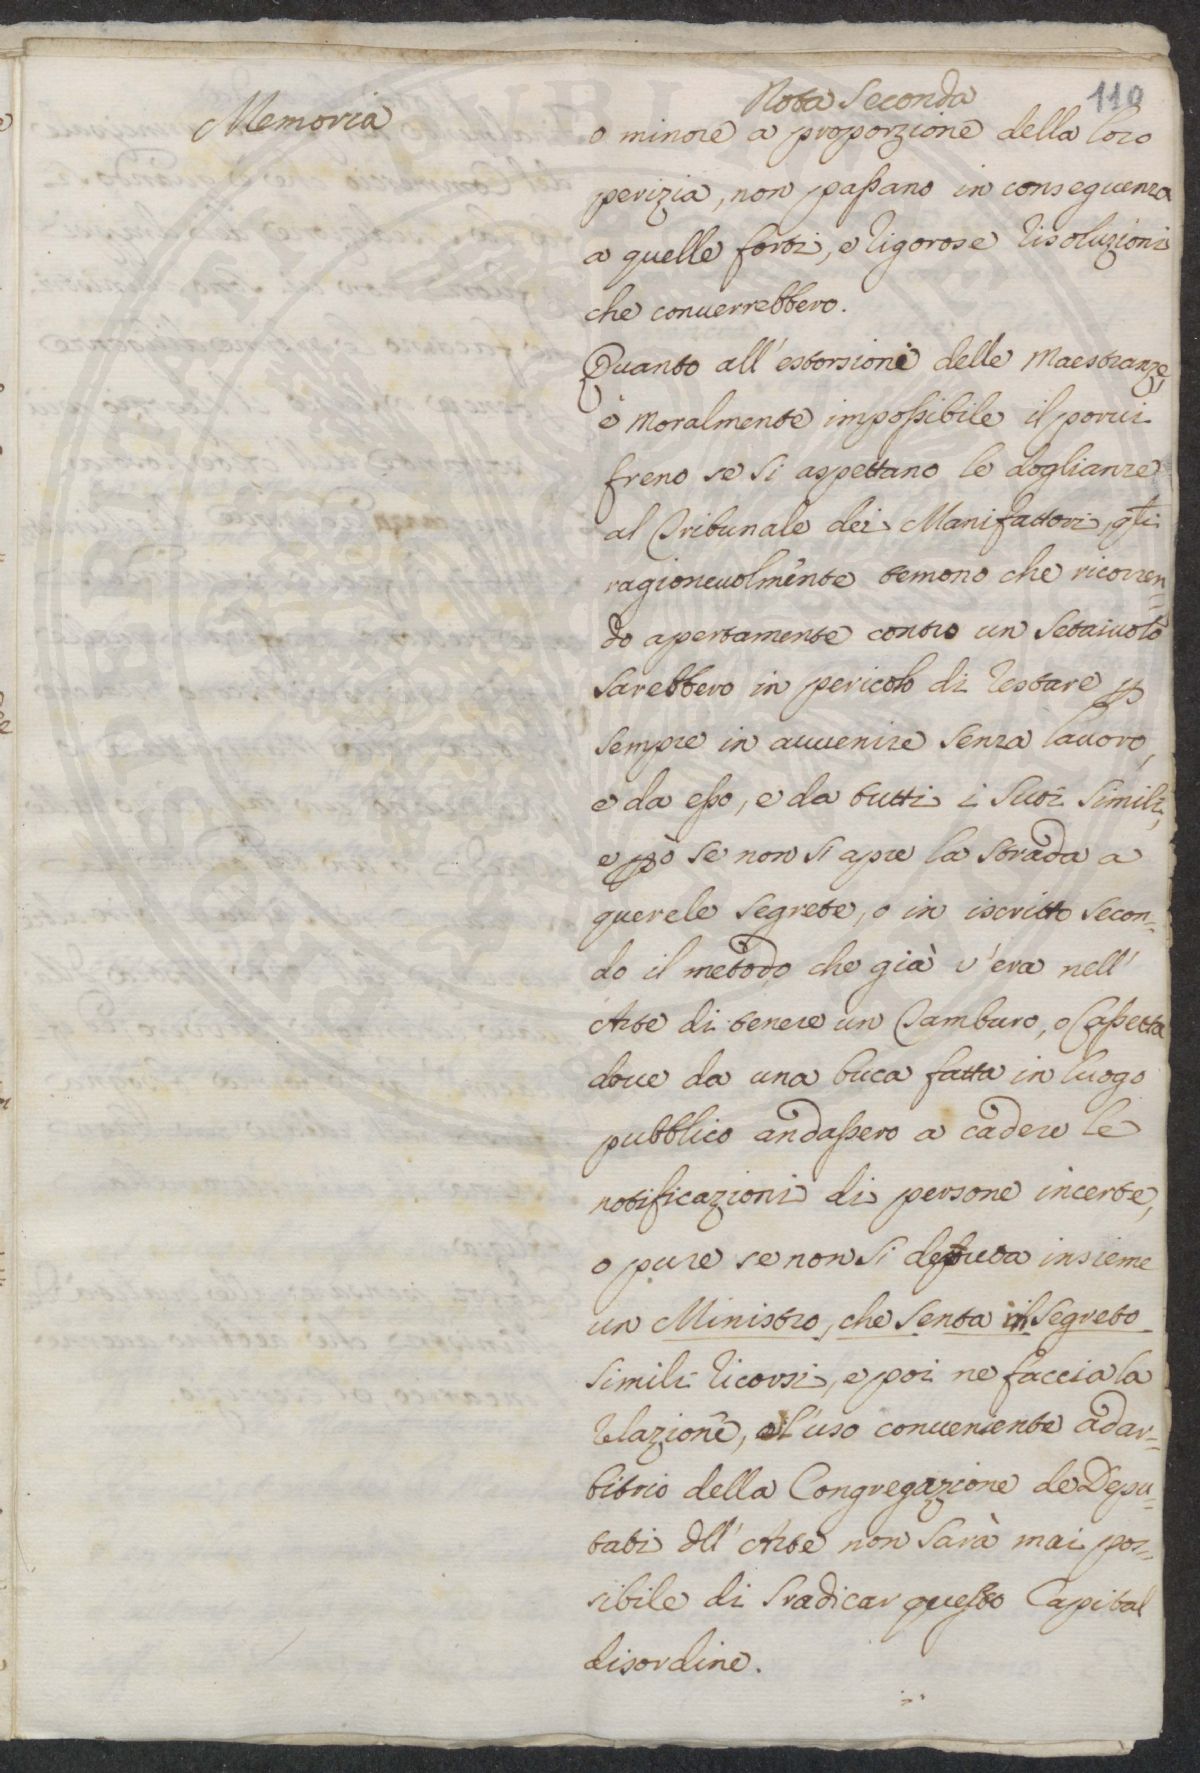 Memoria
Nota Seconda
110
o minore a proporzione della loro
perizia, non passano in conseguenza
a quelle forti, e rigorose risoluzioni
che conuerrebbero.
Quanto all'estorsioni delle Maestranze,
è Moralmente impossibile il porui
freno se si aspettano le doglianze
al Tribunale dei Manifattori, qli
ragioneuolmente temono che ricorren=
do apertamente contro un Setaiuolo
sarebbero in pericolo di restare p
sempre in auuenire senza lauoro,
e da esso, e da tutti i suoi simili,
e pò se non si apre la strada a
querele segrete, o in iscritto secon=
do il metodo che già v'era nell'
Arte di tenere un Tamburo, o Cassetta
doue da una buca fatta in luogo
pubblico andassero a cadere le
notificazioni di persone incerte,
o pure se non si deputa insieme
un Ministro, che senta in segreto
simili ricorsi, e poi ne faccia la
relazione, e l'uso conueniente ad ar=
bitrio della Congregazione de Depu=
tati dll'Arte non sarà mai pos=
sibile di sradicar questo Capital
disordine.